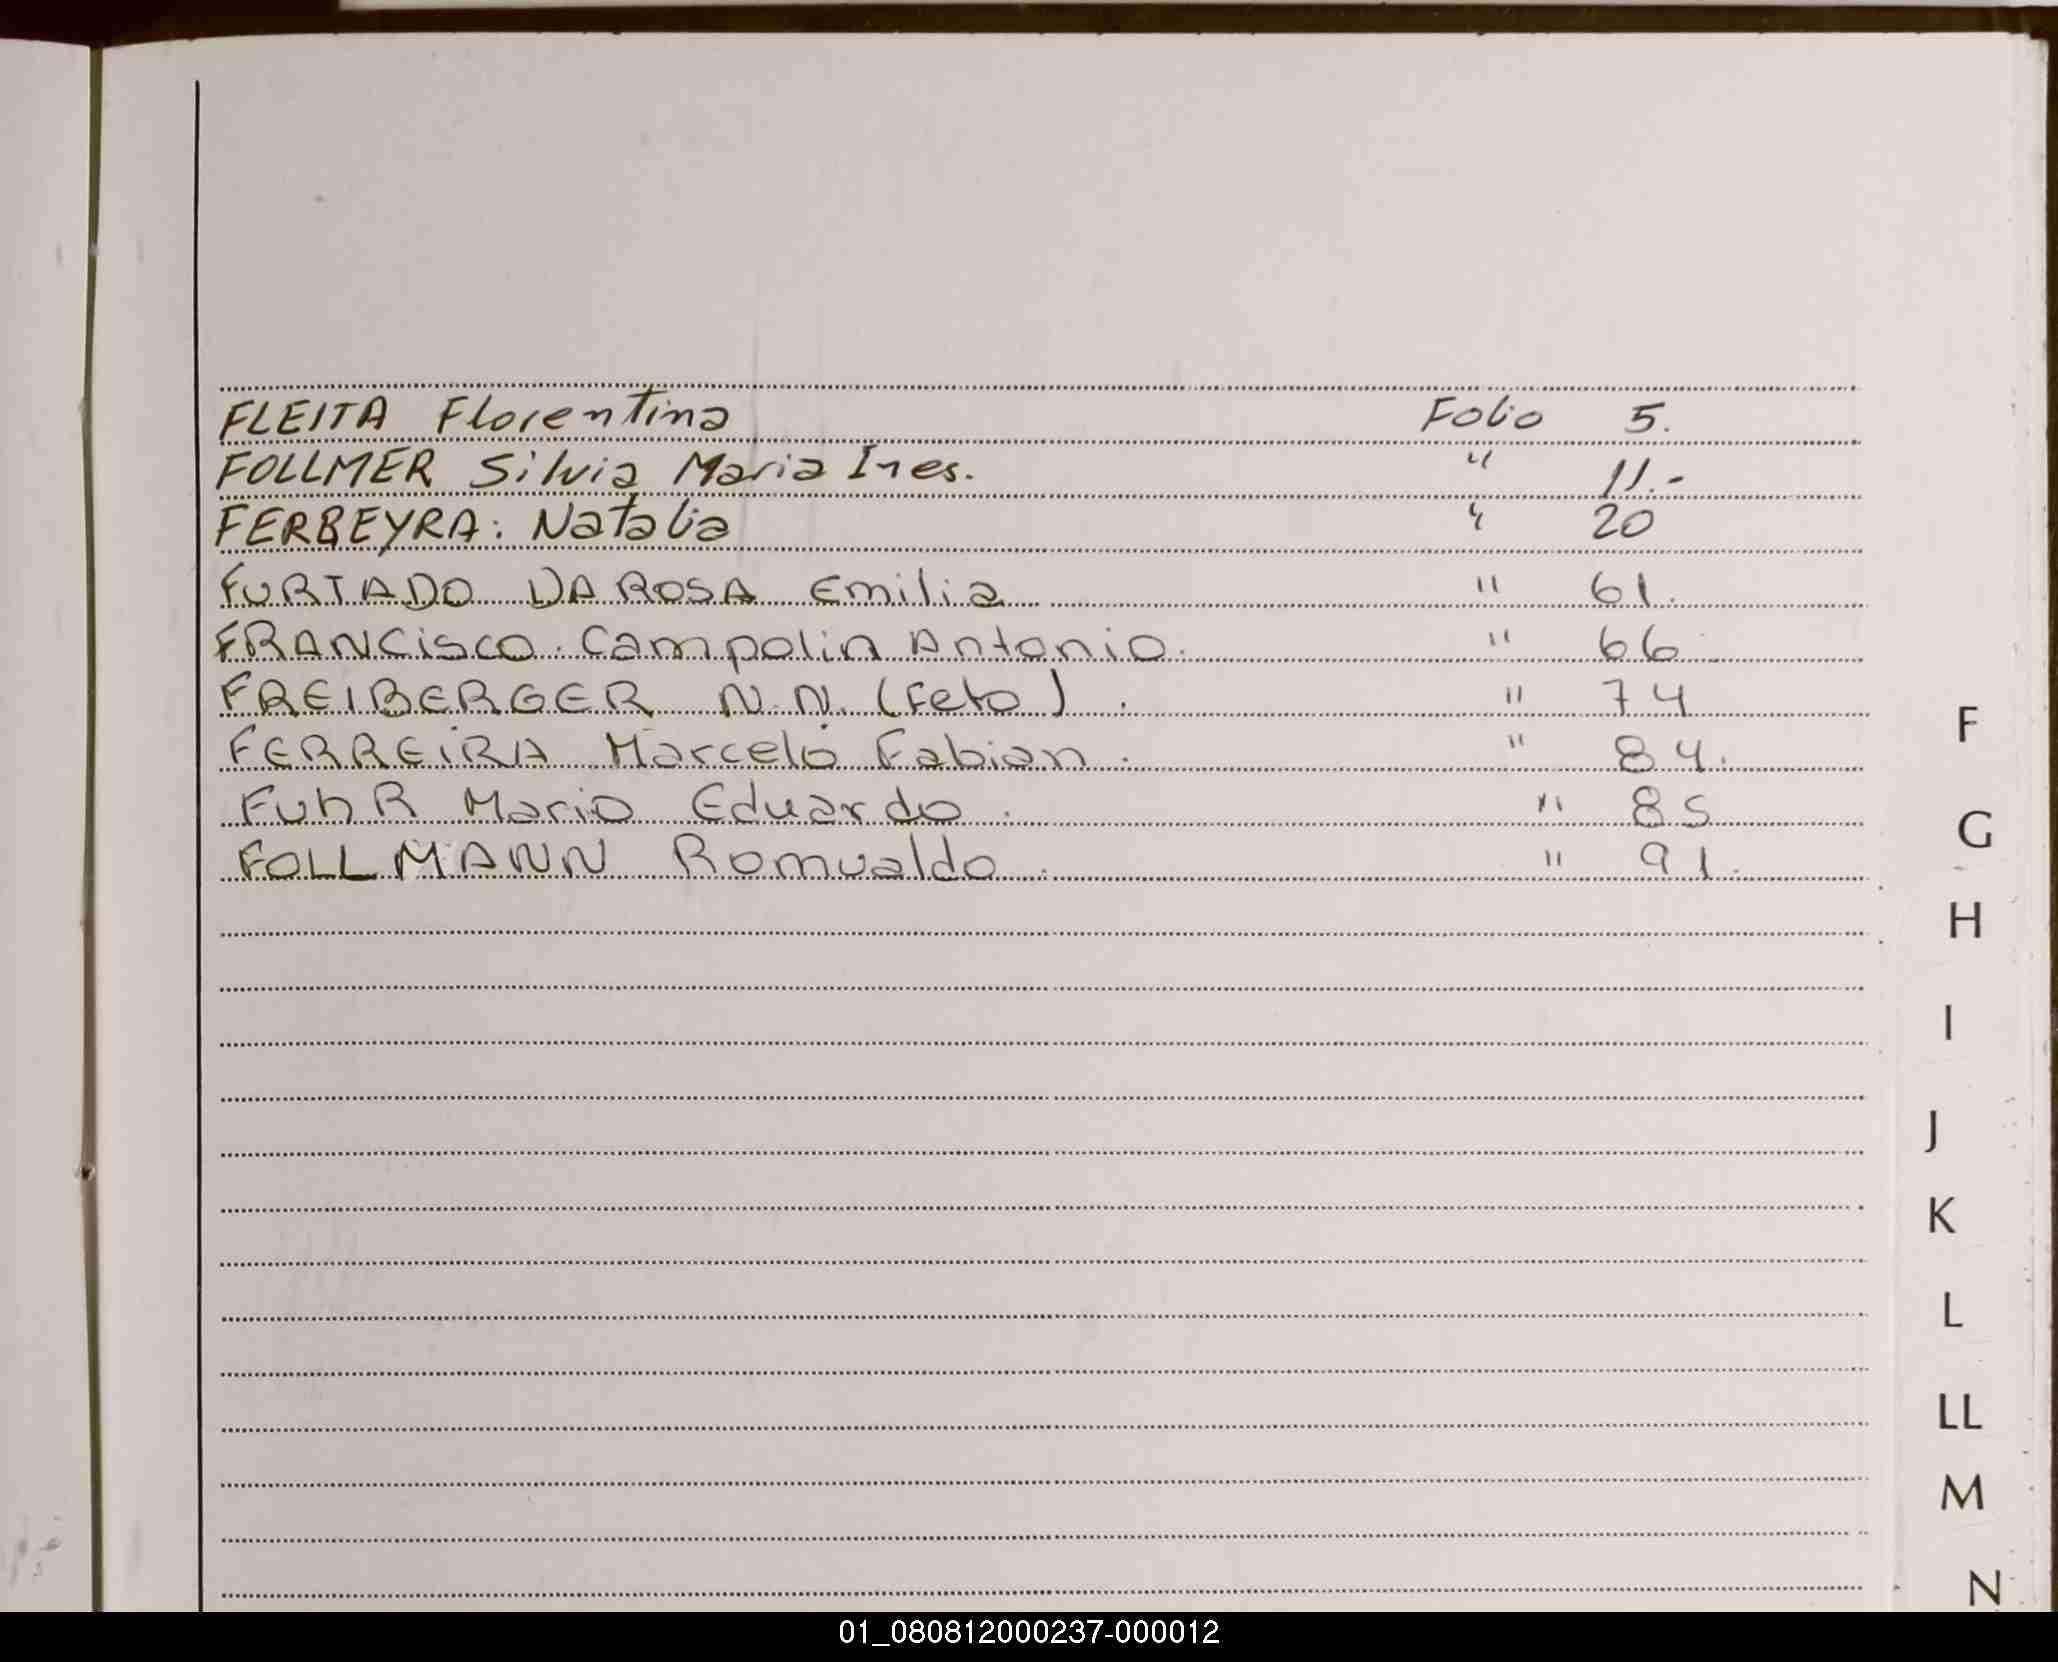 FLEITA Florentina Folio 5.
FOLLMER Silvia Maria Ines. " 11.-
FERBEYRA: Natalia " 20
FURTADO DA ROSA Emilia " 61.
FRANCisco. Campolin Antonio. " 66
FREIBERGER N.N. (Feto). " 74
FERREiRA Marcelo Fabian. " 84.
FUhR Mario Eduardo. " 85
FOLLMANN Romualdo. " 91.
F
G
H
I
J
K
L
LL
M
N
01_080812000237-000012